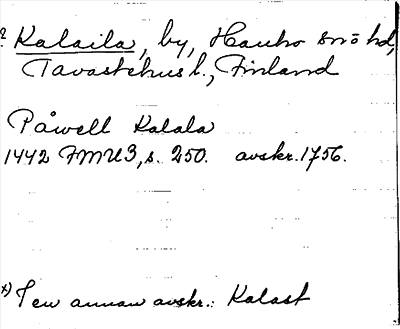 ? Kalaila, by, Hauho snö hd,
Tavastehus l., Finland
Påwell Kalala
1442 FMU3, s. 250. avskr. 1756.
x) I en annan avskr.: Kalast